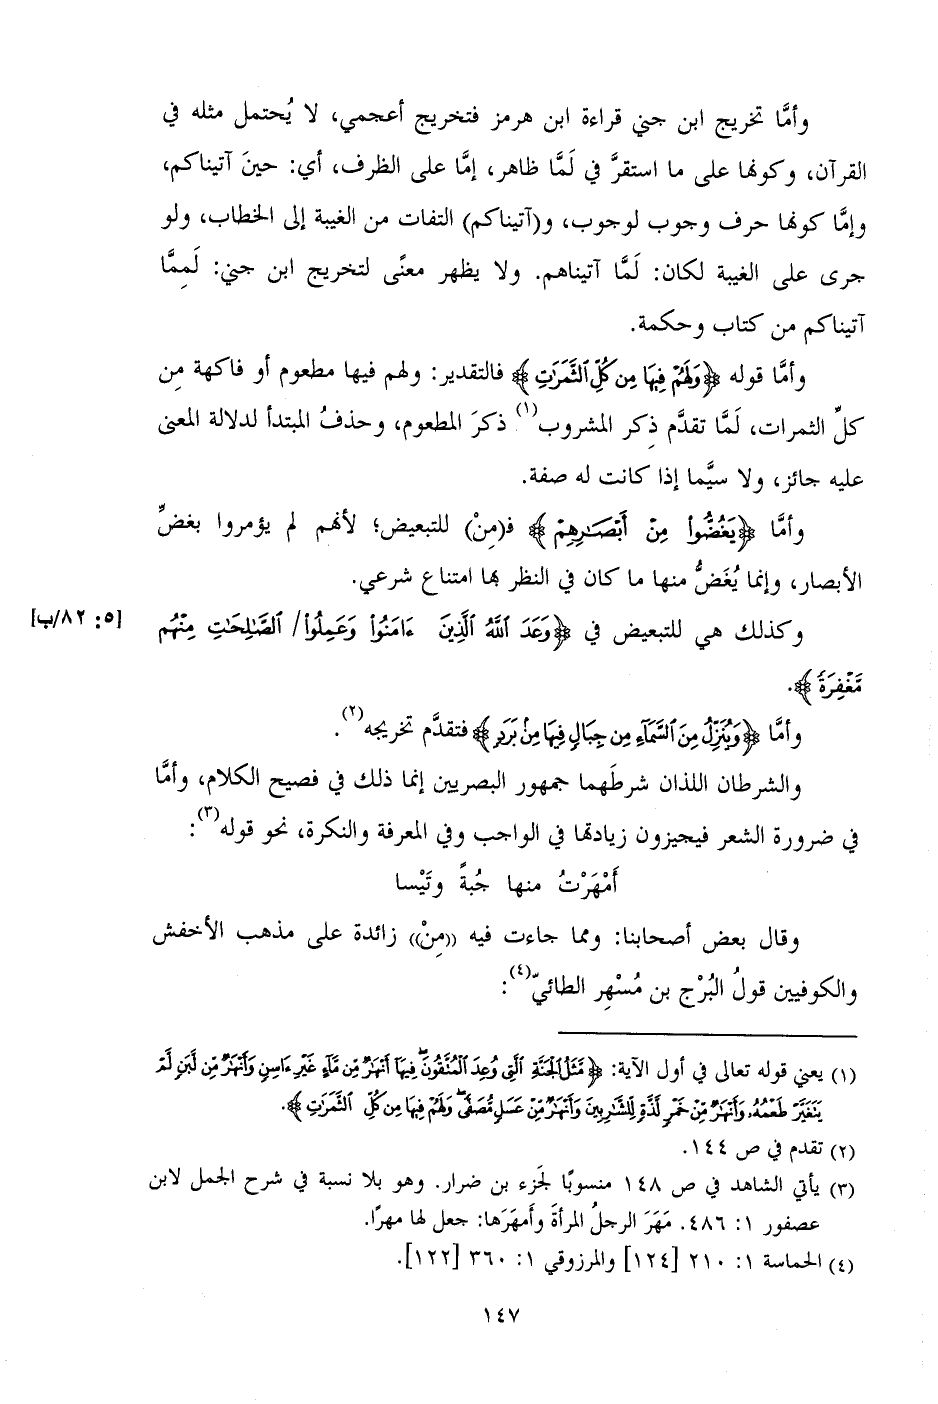 وأمَّا تخريج ابن جني قراءة ابن هرمز فتخريج أعجمي، لا يُحتمل مثله في
القرآن، وكونها على ما استقرَّ في لَمَّا ظاهر، إمَّا على الظرف، أي: حينَ آتيناكم،
وإمَّا كونها حرف وجوب لوجوب، و(آتيناكم) التفات من الغيبة إلى الخطاب، ولو
جرى على الغيبة لكان: لَمَّا آتيناهم. ولا يظهر معنًى لتخريج ابن جني: لَمِمَّا
آتيناكم من كتاب وحكمة.
وأمَّا قوله ﴿وَلَهُمْ فِيهَا مِن كُلِّ ٱلثَّمَرَٰتِ﴾ فالتقدير: ولهم فيها مطعوم أو فاكهة مِن
كلِّ الثمرات، لَمَّا تقدَّم ذِكر المشروب(١) ذكرَ المطعوم، وحذفُ المبتدأ لدلالة المعنى
عليه جائز، ولا سيَّما إذا كانت له صفة.
وأمَّا ﴿يَغُضُّوا۟ مِنْ أَبْصَٰرِهِمْ﴾ فـ(مِنْ) للتبعيض؛ لأنهم لم يؤمروا بغضِّ
الأبصار، وإنما يُغَضُّ منها ما كان في النظر بها امتناع شرعي.
وكذلك هي للتبعيض في ﴿وَعَدَ ٱللَّهُ ٱلَّذِينَ ءَامَنُوا۟ وَعَمِلُوا۟/ ٱلصَّٰلِحَٰتِ مِنْهُم [٥: ٨٢/ب]
مَّغْفِرَةً﴾.
وأمَّا ﴿وَيُنَزِّلُ مِنَ ٱلسَّمَآءِ مِن جِبَالٍ فِيهَا مِنۢ بَرَدٍ﴾ فتقدَّم تخريجه(٢).
والشرطان اللذان شرطَهما جمهور البصريين إنما ذلك في فصيح الكلام، وأمَّا
في ضرورة الشعر فيجيزون زيادتها في الواجب وفي المعرفة والنكرة، نحو قوله(٣):
أَمْهَرْتُ منها جُبةً وتَيْسا
وقال بعض أصحابنا: ومما جاءت فيه «مِنْ» زائدة على مذهب الأخفش
والكوفيين قولُ البُرْج بن مُسْهِر الطائيّ(٤):
(١) يعني قوله تعالى في أول الآية: ﴿مَّثَلُ ٱلْجَنَّةِ ٱلَّتِي وُعِدَ ٱلْمُتَّقُونَ فِيهَآ أَنْهَٰرٌ مِّن مَّآءٍ غَيْرِ ءَاسِنٍ وَأَنْهَٰرٌ مِّن لَّبَنٍ لَّمْ
يَتَغَيَّرْ طَعْمُهُۥ وَأَنْهَٰرٌ مِّنْ خَمْرٍ لَّذَّةٍ لِّلشَّٰرِبِينَ وَأَنْهَٰرٌ مِّنْ عَسَلٍ مُّصَفًّى وَلَهُمْ فِيهَا مِن كُلِّ ٱلثَّمَرَٰتِ﴾.
(٢) تقدم في ص ١٤٤.
(٣) يأتي الشاهد في ص ١٤٨ منسوبًا لجَزء بن ضرار. وهو بلا نسبة في شرح الجمل لابن
عصفور ١: ٤٨٦. مَهَرَ الرجلُ المرأةَ وأمهَرَها: جعل لها مهرًا.
(٤) الحماسة ١: ٢١٠ [١٢٤] والمرزوقي ١: ٣٦٠ [١٢٢].
١٤٧